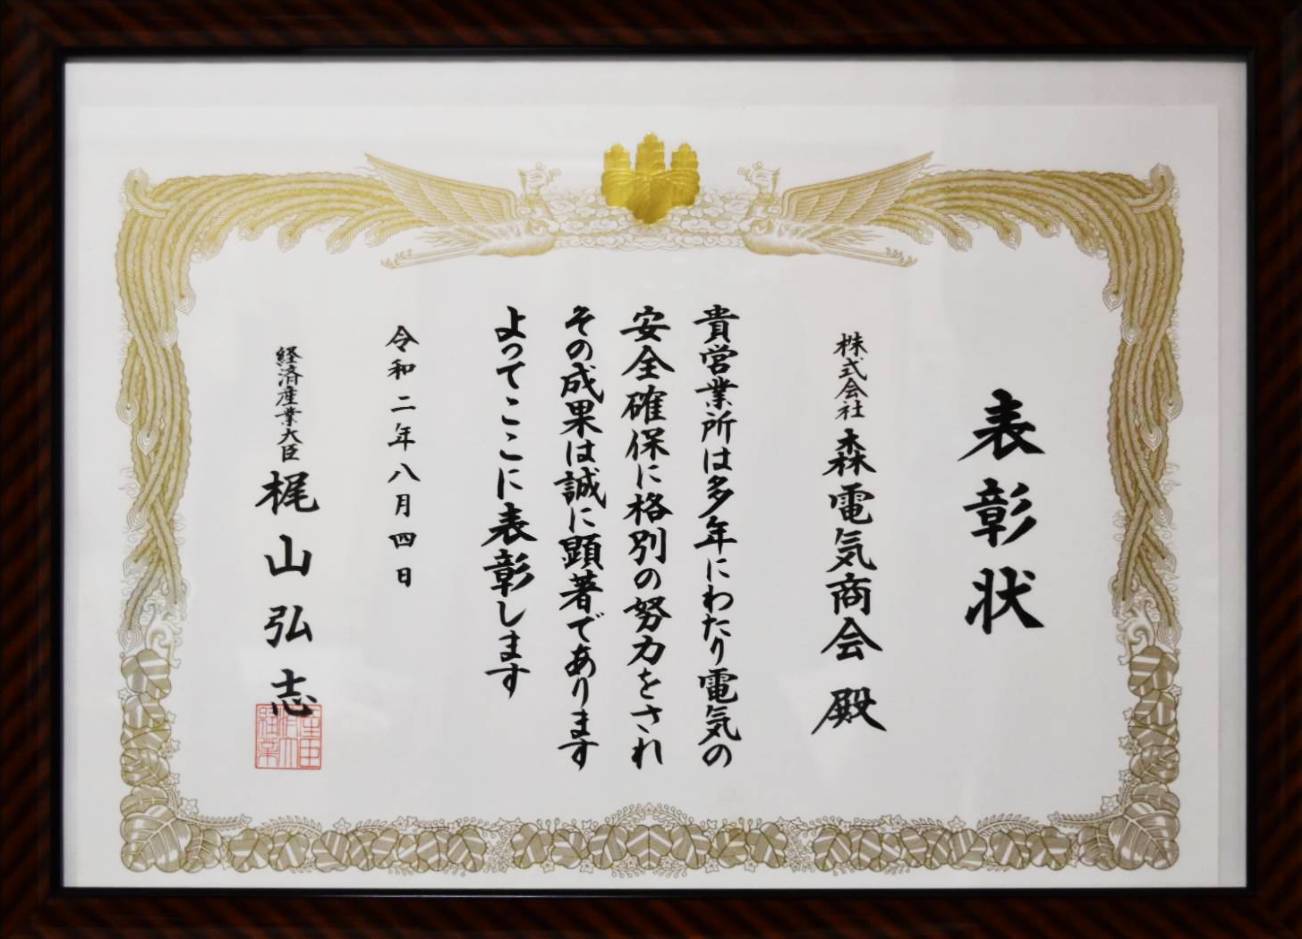 表彰状
株式会社 森電気商会 殿
貴営業所は多年にわたり電気の
安全確保に格別の努力をされ
その成果は誠に顕著であります
よってここに表彰します
令和二年八月四日
経済産業大臣 梶山弘志